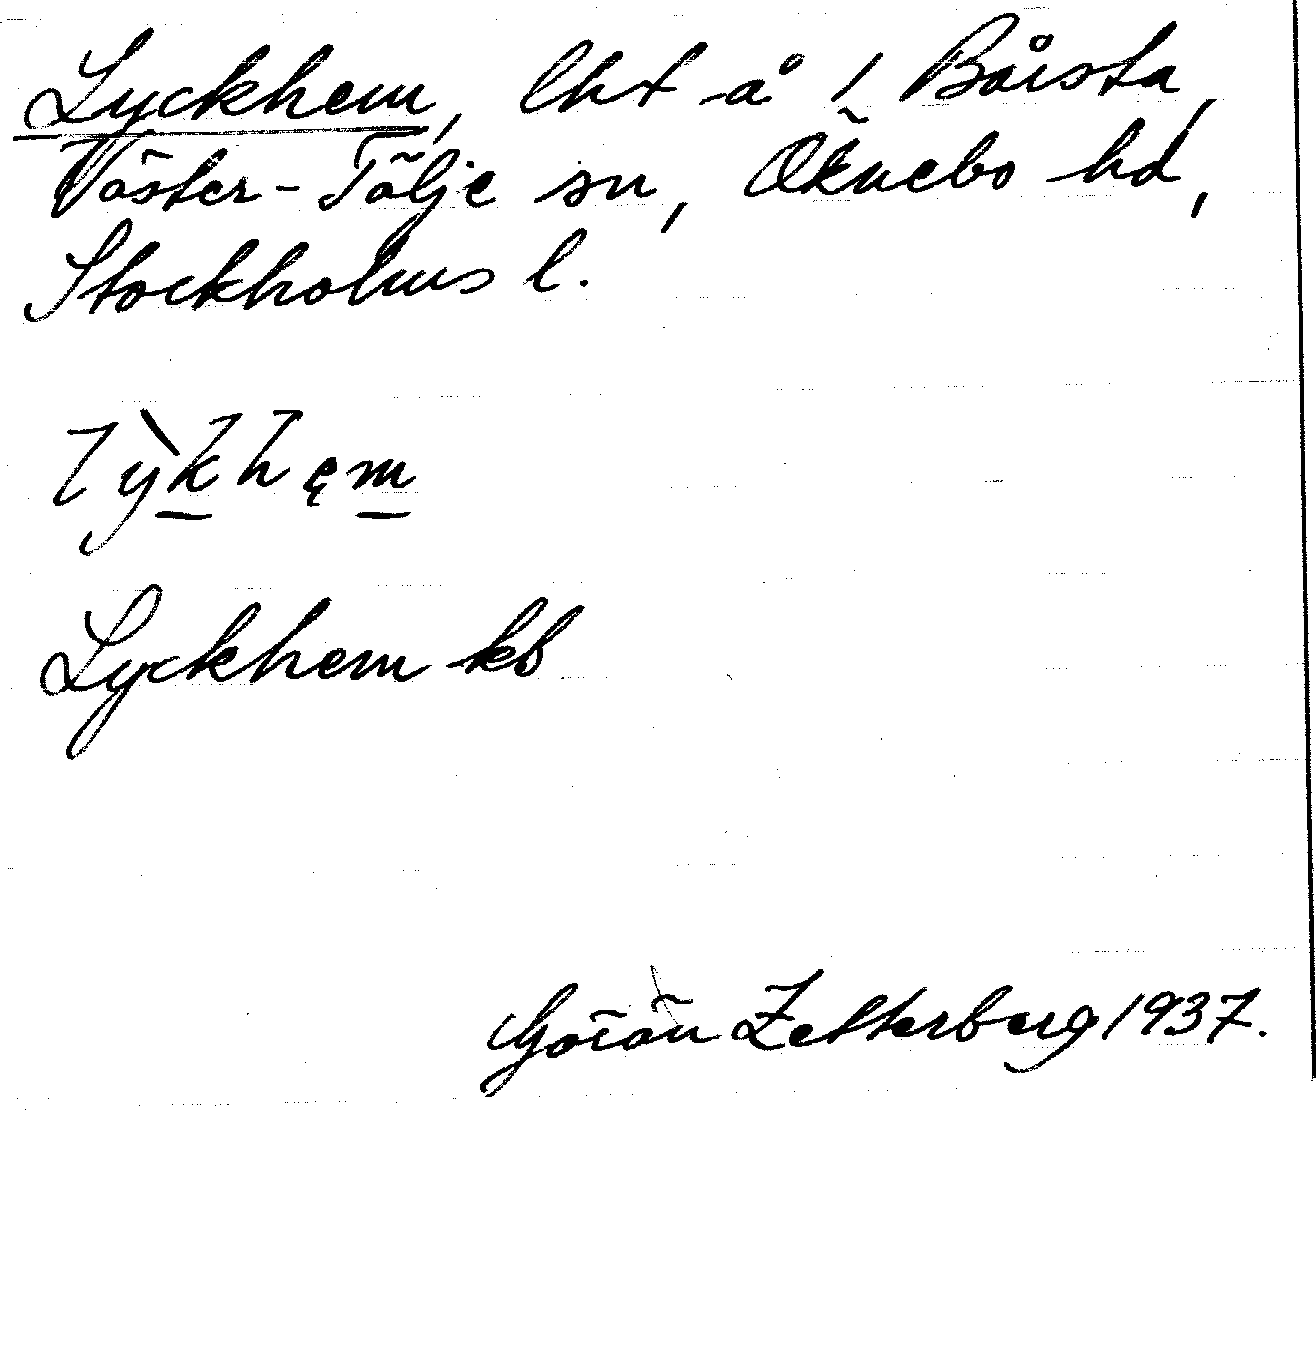 Lyckhem, lht å 1 Bårsta,
Väster-Tälje sn, Öknebo hd,
Stockholms l.
lỳkhęm
Lyckhem kb
Göran Zetterberg 1937.